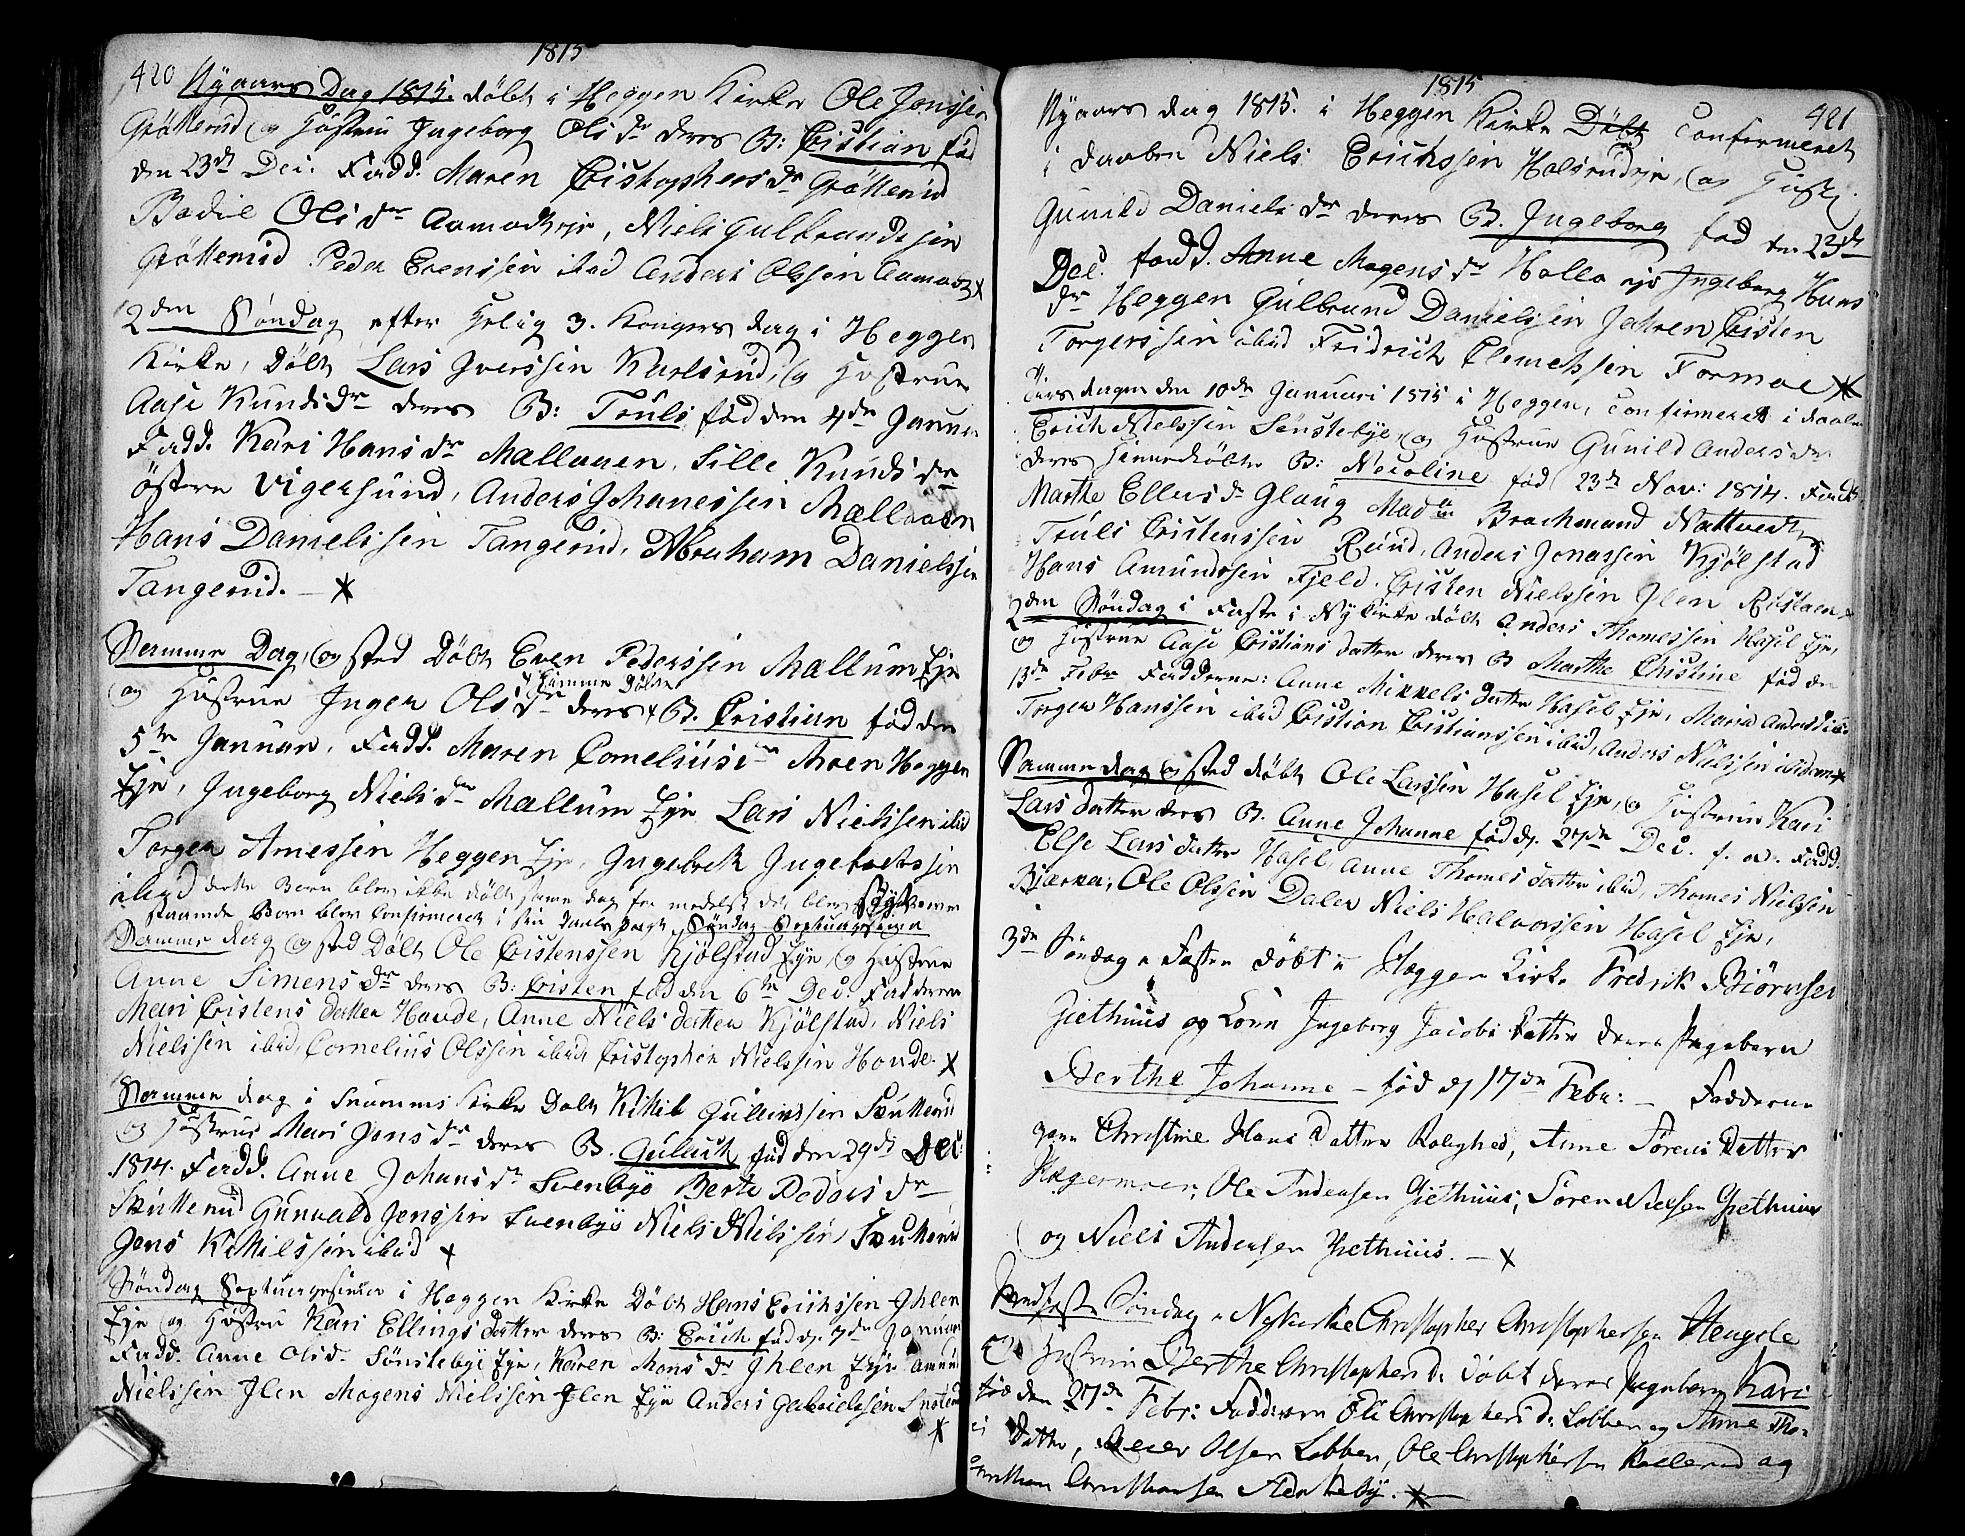 1815
420 Nyaars Dag 1815. döbt i Heggen Kirke Ole Jonssen
Gröttenid og Hustrue Ingeborg Ols dr deres B: Cristian föd
den 23de Dec. Fadd. Maren Cristophers dr Gröttenid
Bodil Ols dr Aamodteje, Niels Gulbrandssen
Gröttenid Peder Evenssen ibid Anders Olssen Aamodt
2den Söndag efter Helig 3. Kongers dag i Heggen
Kirke, döbt Lars Iverssen Karlsrud, og Hustrue
Aase Knuds dr deres B: Truls föd den 4de Januar
Fadd. Kari Hans dr Mallauen, Sille Knuds dr
östere Vigersund, Anders Johanessen Mallauen
Hans Danielssen Tangerud, Abraham Danielssen
Tangerud. —
Samme Dag, og sted Döbt Even Pederssen Mallum Eje
og Hustrue Inger Ols dr deres hiemme döbte B. Cristian föd den
5te Januar, Fadd. Maren Cornelius dr Aaen Heggen
Eje, Ingeborg Niels dr Mallum Eje Lars Nielssen ibid
Torger Arnessen Heggen Eje, Ingebrett Ingebretssen
ibid dette Barn blev ikke döbt samme dag
Barn blev Confirmeret i sin Daabs pagt Söndag Septuagesima
Samme dag og sted Döbt Ole Cristenssen Kjölstad Eje og Hustrue
Anne Simens dr deres B: Cristen föd den 6te Dec: Fadderne
Mari Cristens datter Hovde, Anne Niels datter Kjölstad, Niels
Nielssen ibid, Cornelius Olssen ibid Cristopher Nielssen Hovde.
Samme dag i Snarums Kirke Döbt Kittil Gulichssen
og Hustrue Mari Jens dr deres B. Gulich föd den 29de Dec
1814. Fadd. Anne Johans dr Svenbye Berte Peders dr
Gunvald Jenssen Svenbye Niels Nielssen
Jens Kittilssen ibid
Söndag Septuagesima i Heggen Kirke Döbt Hans Erichssen Ihlen
Eje og Hustru Kari Ellings datter deres B: Erich föd d. 7de Januar
Fadd. Anne Ols dr Sönstebye Eje, Karen Mons dr Ihlen Eje
Nielssen Ilen Mogens Nielssen Ilen Eje Anders Gabrielssen
1815
421
Nyaars dag 1815. i Heggen Kirke Döbt Confirmeret
i daaben Niels Erichssen Halsrudeje, og Hustr.
Gunild Daniels dr deres B. Ingeborg föd den 23de
Dec. Fadd. Anne Mogens dr Holla eje Ingeborg Hans
dr Heggen Gulbrand Danielssen Jahren Cristen
Torgerssen ibid Fridrich Clemetssen Formoe
dagen den 10de Januari 1815 i Heggen, Confirmeret i daaben
Erich Nielssen Sönstebye og Hustrue Gunild Anders dr
deres hiemmedöbte B: Nicoline föd 23de Nov: 1814. Fadd.
Marthe Ellevs dr Glaug Mad Brochmand Nattvedt,
Truls Cristenssen Rund, Anders Jonassen Kjölstad
Hans Amundssen Fjeld. Cristen Nielssen Ilen
2den Söndag i Faste i Nykirke döbt Anders Thomessen Hasel Eje,
og Hustrue Aase Cristians datter deres B Marthe Christine föd den
13de Febr Fadderne: Anne Mikkels datter Hasel Eje, Maria
Torger Hanssen ibid Cristian Cristianssen ibid, Anders Nielssen ibidem
Samme dag og sted döbt Ole Larssen Hasel Eje, og Hustrue Kari
Lars datter deres B. Anne Johanne föd d. 27de Dec. f. A. Fadd:
Else Lars datter Hasel Anne Thomes datter ibid, Thomes Nielsen
Bierke, Ole Olssen Dalen Niels Halvorssen Hasel Eje,
3de Söndag i Fasten döbt i Heggen Kirke Fredrik Biörnsen
Giethuus og Kone Ingeborg Jacobs datter deres Pigebarn
Berthe Johanne — föd d 17de Febr: — Fadderne
vare Christine Hans Datter Rolighed, Anne Sörens Datter
Hagermoen, Ole Andersen Giethuus, Sören Nielsen Giethuus
og Niels Andersen Giethuus. —
Söndag i Nykirke Christopher Christophersen Hengsle
og Hustrue Berthe Christophers d. döbt deres Pigebarn Kari
föd den 27de Febr: Fadderne Christophers d. Lobben og Anne
Datter, Olsen Lobben, Ole Christophersen og
Christiansen